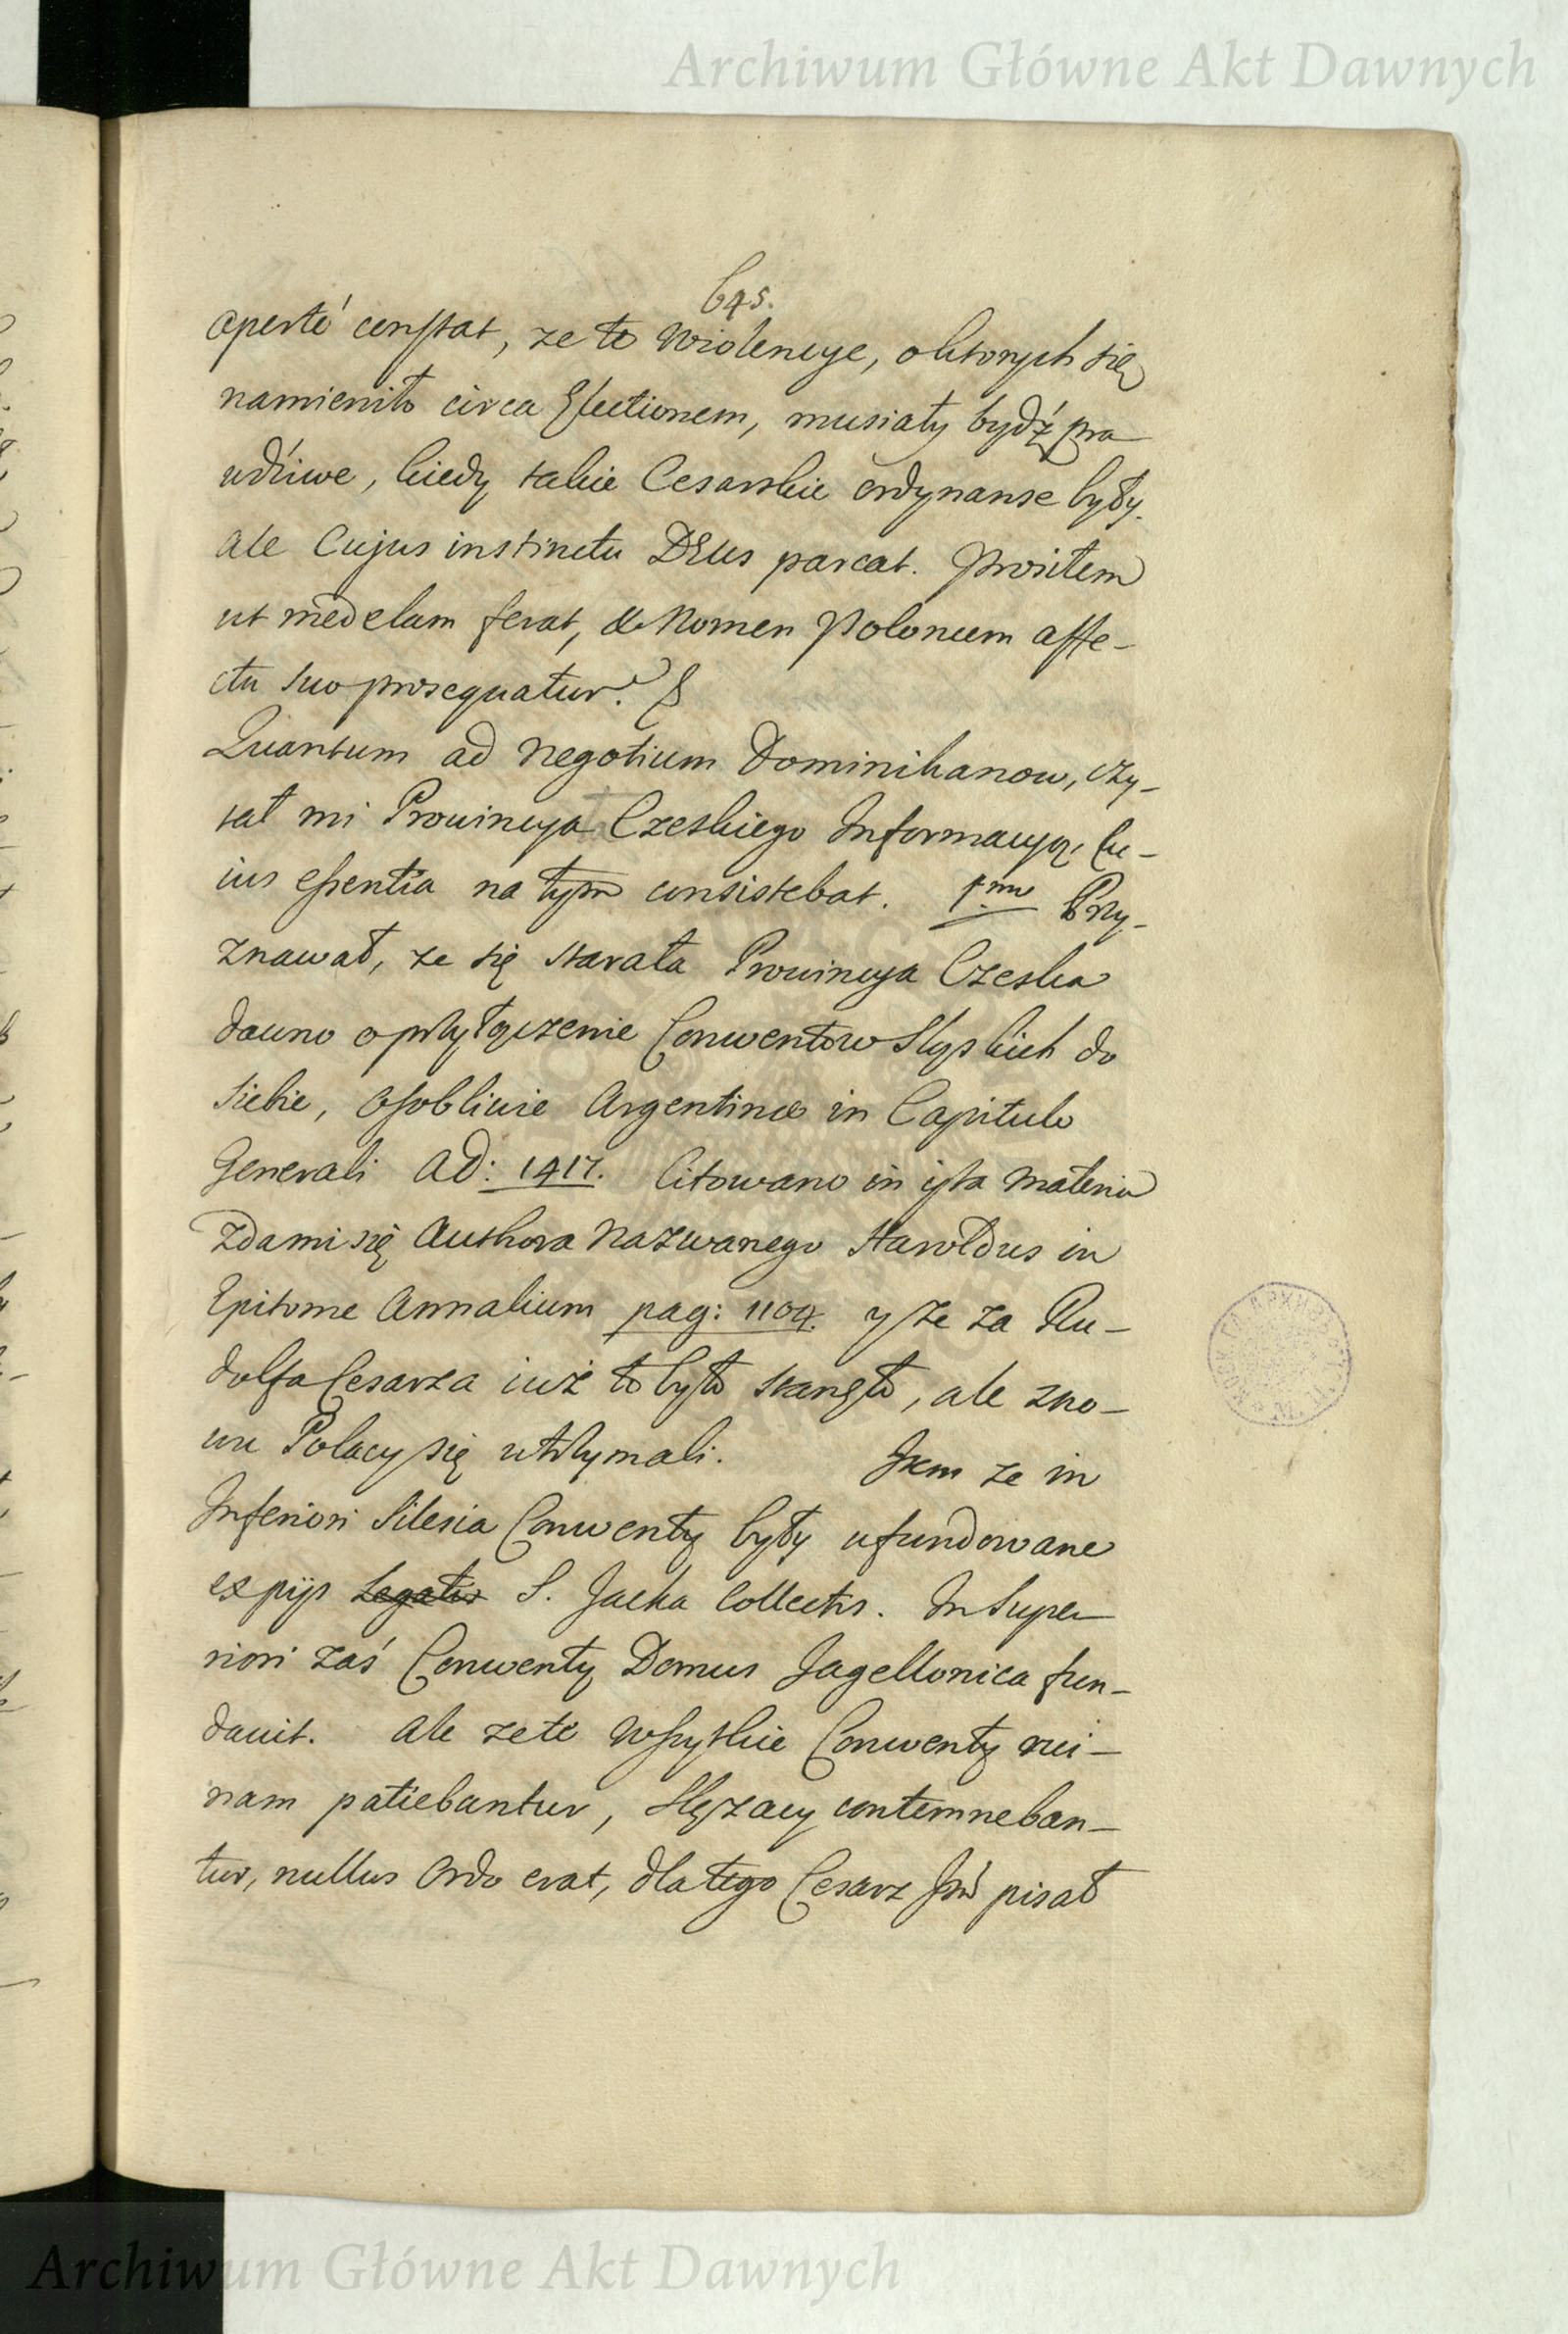 Archiwum Główne Akt Dawnych
645.
aperté constat, ze te Wiolencye, o ktorych się
namieniło circa Electionem, musiały bydź pra
wdziwe, kiedy takie Cesarskie ordynanse były.
ale Cujus instinctu DEus parcat. Prosiłem
ut medelam ferat, & Nomen Polonum affe-
ctu suo prosequatur.
Quantum ad Negotium Dominikanow, czy-
tał mi Prowincyała Czeskiego Informacyą, cu-
ius essentia na tym consistebat. 1.mo Przy-
znawał, ze się starała Prowincya Czeska
dawno o przyłączenie Conwentow Sląskich do
siebie, osobliwie Argentinæ in Capitulo
Generali AD: 1417. Citowano in ista materia
zda mi się Authora Nazwanego Haroldus in
Epitome Annalium pag: 1104. y ze za Ru-
dolfa Cesarza iuż to było stanęło, ale zno-
wu Polacy się utrzymali. Item ze in
Inferiori Silesia Conwenty były ufundowane
ex pijs Legatis S. Jacka Collectis. In Supe-
riori zaś Conwenty Domus Jagellonica fun-
davit. Ale ze te Wszytkie Conwenty rui-
nam patiebantur, Slęzacy contemneban-
tur, nullus Ordo erat, dlatego Cesarz Jmć pisał
Archiwum Główne Akt Dawnych